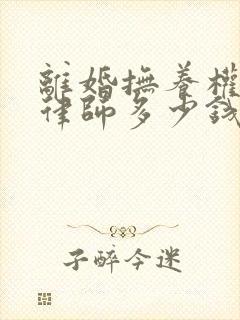 離婚撫養權
律師多少錢
子醉今迷